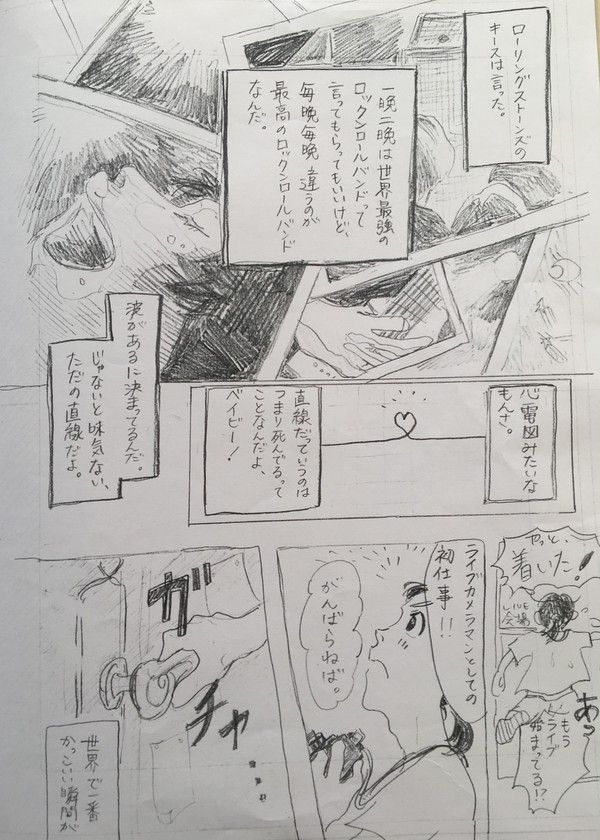 ローリングストーンズの
キースは言った。
一晩二晩は世界最強の
ロックンロールバンドって
言ってもらってもいいけど、
毎晩毎晩違うのが
最高のロックンロールバンド
なんだ。
波があるに決まってるんだ。
じゃないと味気ない、
ただの直線だよ。
心電図みたいな
もんさ。
直線だっていうのは
つまり死んでるって
ことなんだよ、
ベイビー！
やっと、
着いた！
LIVE
会場
あっ
もう
ライブ
始まってる!?
ライブカメラマンとしての
初仕事!!
がんばらねば。
ガ
チャ
…
世界で一番
かっこいい瞬間が